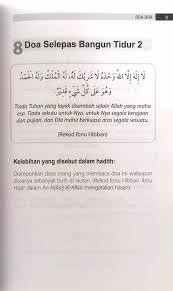 DOA-DOA 9
8 Doa Selepas Bangun Tidur 2
لَا إِلَهَ إِلَّا اللهُ وَحْدَهُ لَا شَرِيْكَ لَهُ، لَهُ الْمُلْكُ وَلَهُ الْحَمْدُ
وَهُوَ عَلَى كُلِّ شَيْءٍ قَدِيْرٌ.
Tiada Tuhan yang layak disembah selain Allah yang maha
esa. Tiada sekutu untuk-Nya, untuk Nya segala kerajaan
dan pujian, dan Dia maha berkuasa atas segala sesuatu.
(Rekod Ibnu Hibban)
Kelebihan yang disebut dalam hadith:
Diampunkan dosa orang yang membaca doa ini walaupun
dosanya sebanyak buih di lautan. (Rekod Ibnu Hibban. Ibnu
Hajar dalam An-Nataij Al-Afkar mengatakan hasan)